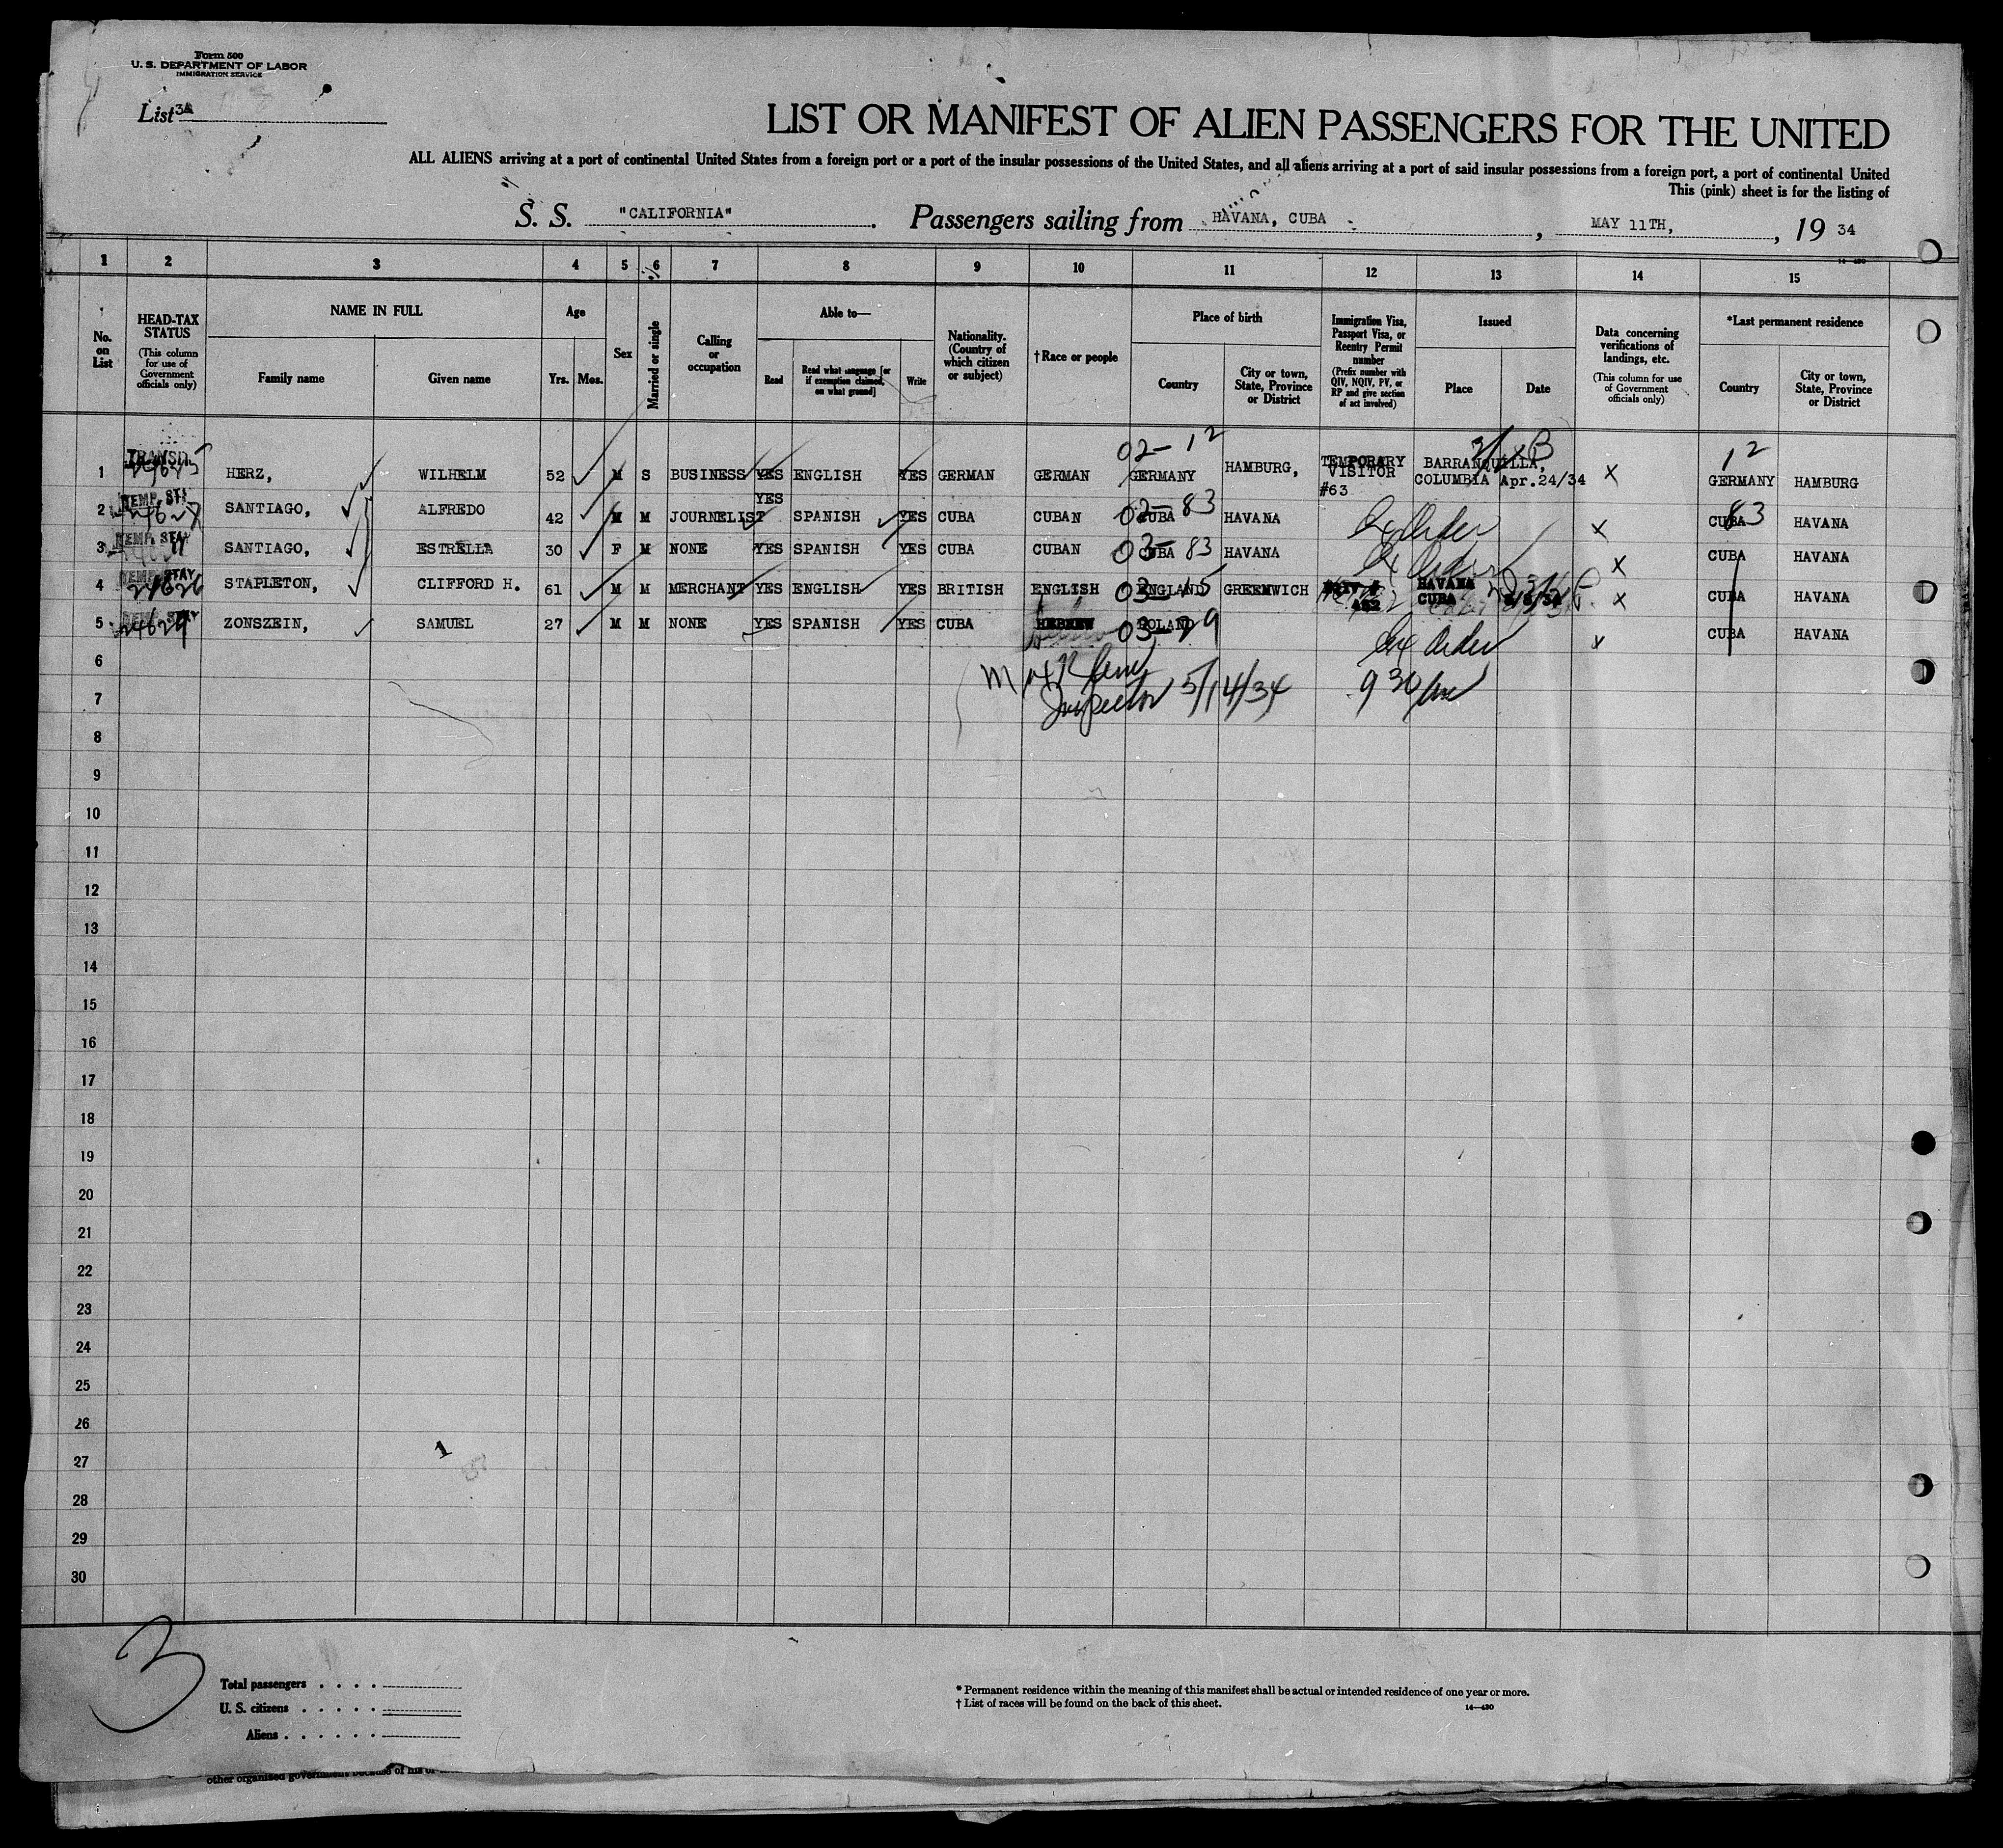 Form 500
U. S. DEPARTMENT OF LABOR
IMMIGRATION SERVICE
List 3A
LIST OR MANIFEST OF ALIEN PASSENGERS FOR THE UNITED
ALL ALIENS arriving at a port of continental United States from a foreign port or a port of the insular possessions of the United States, and all aliens arriving at a port of said insular possessions from a foreign port, a port of continental United
This (pink) sheet is for the listing of
S. S. "CALIFORNIA". Passengers sailing from HAVANA, CUBA, MAY 11TH, , 19 34
1 2 3 4 5 6 7 8 9 10 11 12 13 14 15
No. on List
HEAD-TAX STATUS
(This column for use of Government officials only)
NAME IN FULL
Family name
Given name
Age
Yrs. Mos.
Sex
Married or single
Calling or occupation
Able to—
Read
Read what language [or if exemption claimed, on what ground]
Write
Nationality. (Country of which citizen or subject)
†Race or people
Place of birth
Country
City or town, State, Province or District
Immigration Visa, Passport Visa, or Reentry Permit number
(Prefix number with QIV, NQIV, PV, or RP and give section of act involved)
Issued
Place
Date
Data concerning verifications of landings, etc.
(This column for use of Government officials only)
*Last permanent residence
Country
City or town, State, Province or District
02-12 12
1 TRANSIT HERZ, WILHELM 52 M S BUSINESS YES ENGLISH YES GERMAN GERMAN GERMANY HAMBURG, TEMPORARY VISITOR #63 BARRANQUILLA, COLUMBIA Apr.24/34 X GERMANY HAMBURG
2 TEMP. STAY 24627 SANTIAGO, ALFREDO 42 M M JOURNELIST YES SPANISH YES CUBA CUBAN CUBA 83 HAVANA Ex Order X CUBA 83 HAVANA
3 TEMP. STAY SANTIAGO, ESTRELLA 30 F M NONE YES SPANISH YES CUBA CUBAN 03- CUBA 83 HAVANA Ex Order X CUBA HAVANA
4 TEMP. STAY 24626 STAPLETON, CLIFFORD H. 61 M M MERCHANT YES ENGLISH YES BRITISH ENGLISH 03-15 ENGLAND GREENWICH HAVANA CUBA X CUBA HAVANA
5 24629 ZONSZEIN, SAMUEL 27 M M NONE YES SPANISH YES CUBA HEBREW 03-29 POLAND Ex Order X CUBA HAVANA
6
7 Inspector 5/14/34 9 30 am
8
9
10
11
12
13
14
15
16
17
18
19
20
21
22
23
24
25
26
27
28
29
30
1
3
Total passengers
U. S. citizens
Aliens
* Permanent residence within the meaning of this manifest shall be actual or intended residence of one year or more.
† List of races will be found on the back of this sheet.
14—430
other organized government because of his or